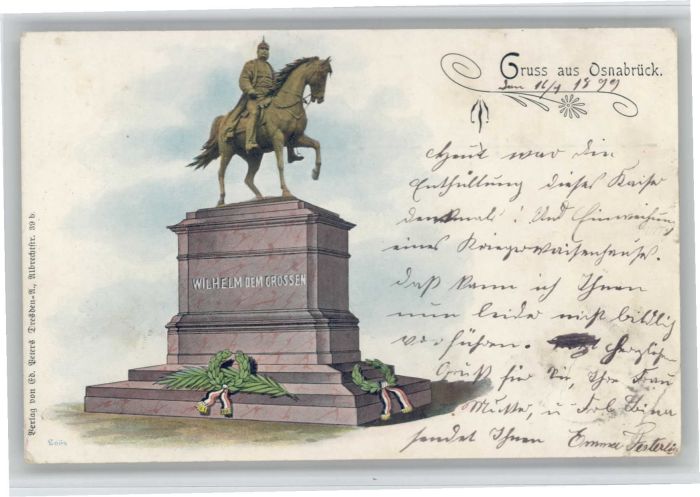 Gruss aus Osnabrück.
den 16/4 1899
Heut war die
Enthüllung dieses Kaiser
denkmals! Und Einweihung
eines Kriegswaisenhauses.
daß kann ich Ihnen
nun leider nicht bildlich
vorführen. herzlichen
Gruß für Sie, Ihre Frau
Mutter, u Frl.
sendet Ihnen Emma
WILHELM DEM GROSSEN
Verlag von Ed. Peters Dresden-A., Albrechtstr. 39 b.